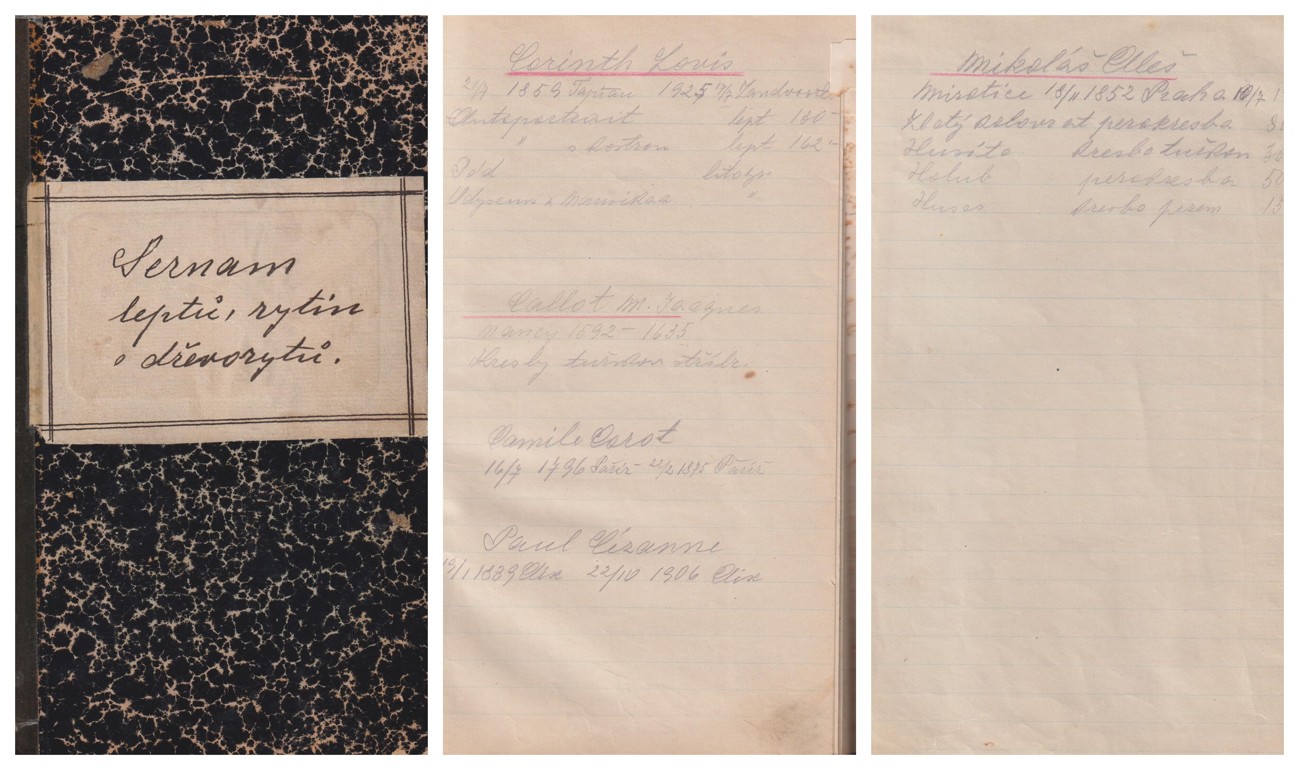 Seznam
leptů, rytin
a dřevorytů.
Corinth Lovis
21/7 1859 Tapiau 1925 17/7 Zandvoort
Selbstportrait lept 130-
" s kostrou lept 162-
Odysseus a Nausikaa "
Callot M. Jacques
Nancy 1592 - 1635
Kresby tužkou stříbr.
Camile Corot
16/7 1796 Paříž 22/2 1875 Paříž
Paul Cézanne
19/1 1839 Aix 22/10 1906 Aix
Mikoláš Aleš
Mirotice 18/11 1852 Praha 10/7 1
Zlatý kolovrat perokresba
Husita kresba tužkou
Holub perokresba 50
Husar kresba perem 15